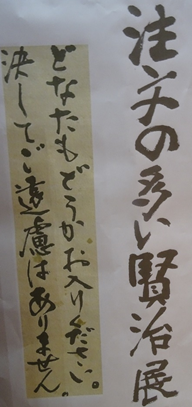 注文の多い賢治展
どなたもどうかお入りください。
決してご遠慮はありません。